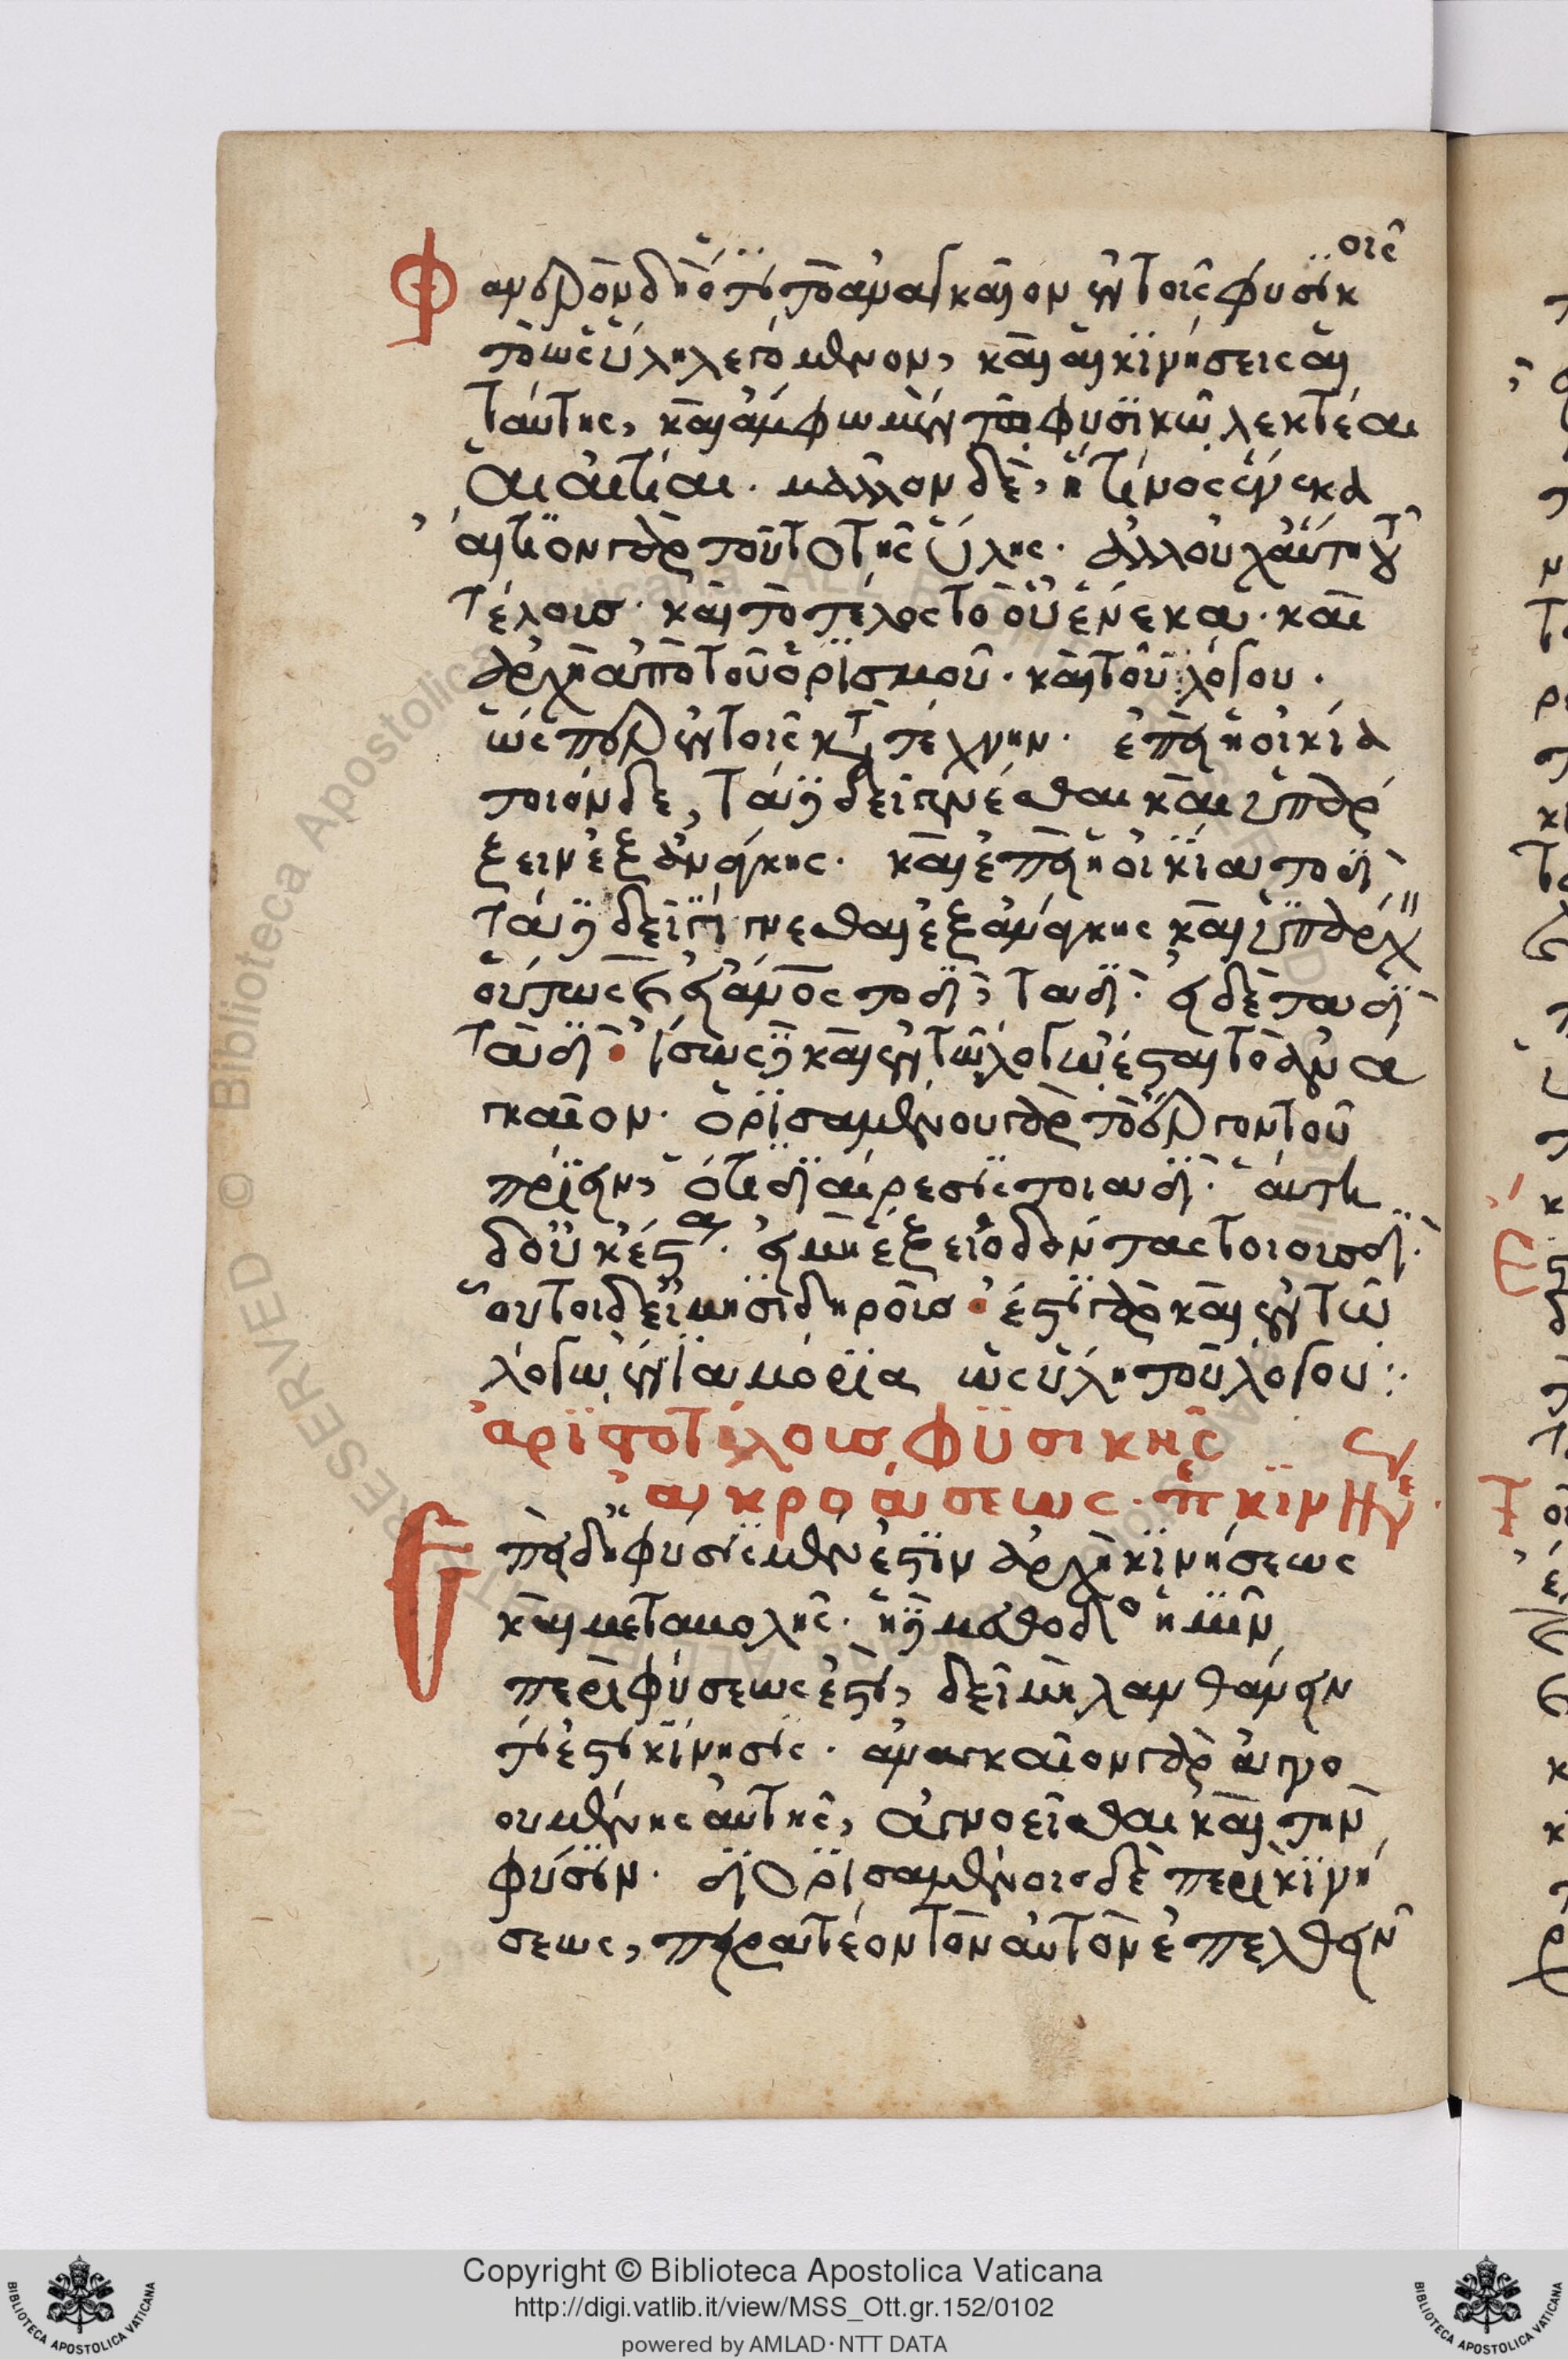 Φανερὸν δὴ ὅτι τὸ ἀναγκαῖον ἐν τοῖς φυσικοῖς
τὸ ὡς ὕλη λεγόμενον, καὶ αἱ κινήσεις αἱ
ταύτης, καὶ ἄμφω μὲν τῶ φυσικῶ λεκτέαι
αἱ αἰτίαι. μᾶλλον δὲ, ἡ τίνος ἕνεκα
αἴτιον γὰρ τοῦτο τῆς ὕλης. ἀλλ οὐχ αὕτη τοῦ
τέλους. καὶ τὸ τέλος τὸ οὗ ἕνεκα. καὶ
ἀρχὴ ἀπὸ τοῦ ὁρϊσμοῦ. καὶ τοῦ λόγου.
ὥσπερ ἐν τοῖς κατὰ τέχνην. ἐπεὶ ἡ οἰκία
τοιόνδε, τάδε δεῖ γενέσθαι καὶ ὑπάρ
ξειν ἐξ ἀνάγκης. καὶ ἐπεὶ ἡ οἰκία τοδὶ
τάδε δεῖ γίγνεσθαι ἐξ ἀνάγκης καὶ ὑπάρχειν
οὕτως καὶ εἰ ἄνθρωπος τοδὶ, ταδί. εἰ δὲ ταδὶ
ταδὶ. ἴσως δὲ καὶ ἐν τῶ λόγω ἔσται τὸ ἀνα
γκαῖον. ὁρϊσαμένου γὰρ τὸ ἔργον τοῦ
πρίειν, ὅτι διαίρεσις τοιαδί. αὕτη
δ οὐκ ἔσται. εἰ μὴ ἕξει ὀδόντας τοιουσδί.
οὗτοι δ εἰ μὴ σιδηροῦς. ἔστι γὰρ καὶ ἐν τῶ
λόγω ἔνια μόρϊα ὡς ὕλη τοῦ λόγου:
ἀριστοτέλους φϋσικῆς
ἀκροάσεως. περὶ κινήσεως.
Ἐπεὶ δ ἡ φύσις μέν ἐστιν ἀρχὴ κινήσεως
καὶ μεταβολῆς. ἡ δὲ μέθοδος ἡμῖν
περὶ φύσεώς ἐστι, δεῖ μὴ λανθάνειν
τί ἐστι κίνησις. ἀναγκαῖον γὰρ ἀγνο
ουμένης αὐτῆς, ἀγνοεῖσθαι καὶ τὴν
φύσιν. διορϊσαμένοις δὲ περὶ κινή
σεως, πειρατέον τὸν αὐτὸν ἐπελθεῖν
Copyright © Biblioteca Apostolica Vaticana
http://digi.vatlib.it/view/MSS_Ott.gr.152/0102
powered by AMLAD·NTT DATA